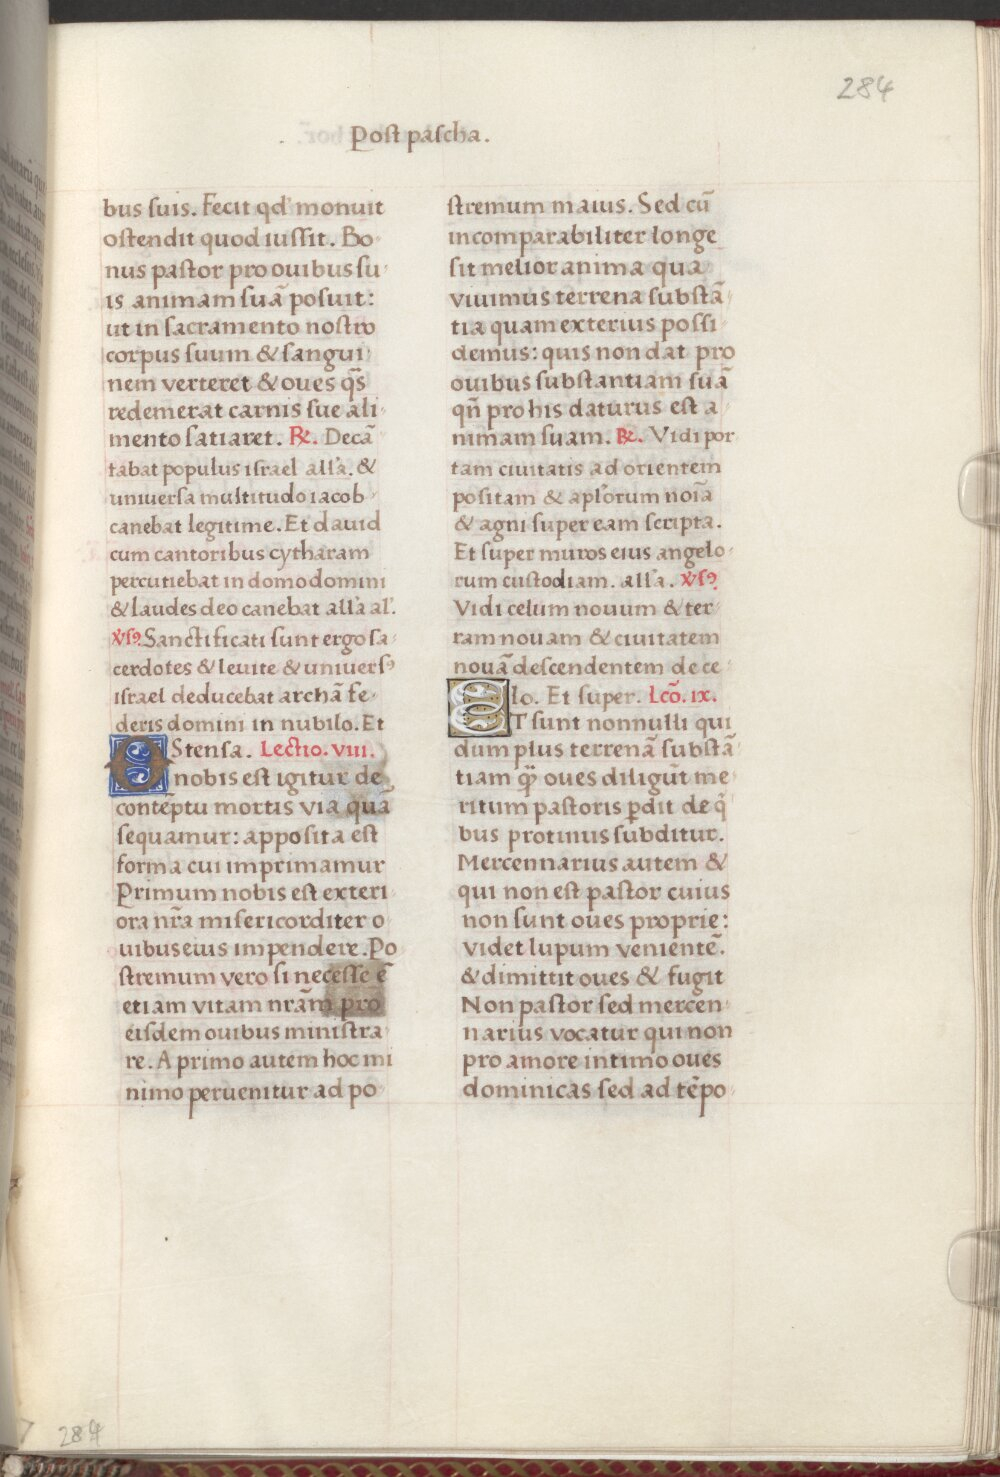 284
Post pascha.
bus suis. Fecit qd' monuit
ostendit quod iussit. Bo
nus pastor pro ouibus su
is animam suā posuit:
ut in sacramento nostro
corpus suum & sangui
nem verteret & oues q̄s
redemerat carnis sue ali
mento satiaret. ℞. Decā
tabat populus israel all'a. &
uniuersa multitudo iacob
canebat legitime. Et dauid
cum cantoribus cytharam
percutiebat in domo domini
& laudes deo canebat all'a al'.
v̓sꝰ. Sanctificati sunt ergo sa
cerdotes & leuite & uniuersꝰ
israel deducebat archā fe
deris domini in nubilo. Et
OStensa. Lectio. viii.
nobis est igitur de
contēptu mortis via quā
sequamur: apposita est
forma cui imprimamur
Primum nobis est exteri
ora nr̄a misericorditer o
uibus eius impendere. Po
stremum vero si necesse ē
etiam vitam nrām pro
eisdem ouibus ministra
re. A primo autem hoc mi
nimo peruenitur ad po
stremum maius. Sed cū
incomparabiliter longe
sit melior anima qua
viuimus terrena substā
tia quam exterius possi
demus: quis non dat pro
ouibus substantiam suā
qn̄ pro his daturus est a
nimam suam. ℞. Vidi por
tam ciuitatis ad orientem
positam & apl'orum noīa
& agni super eam scripta.
Et super muros eius angelo
rum custodiam. all'a. v̓sꝰ.
Vidi celum nouum & ter
ram nouam & ciuitatem
nouā descendentem de ce
lo. Et super. Lcō. ix.
ET sunt nonnulli qui
dum plus terrenā substā
tiam q̄ȝ oues diligūt me
ritum pastoris ꝑdit de q̄
bus protinus subditur.
Mercennarius autem &
qui non est pastor cuius
non sunt oues proprie:
videt lupum venientē.
& dimittit oues & fugit
Non pastor sed mercen
narius vocatur qui non
pro amore intimo oues
dominicas sed ad tēpo
284